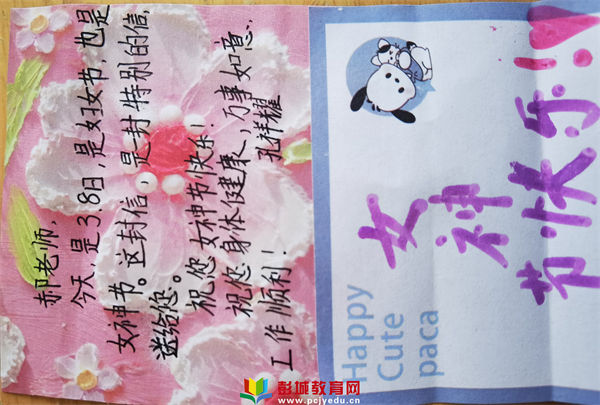 郝老师，
今天，是3.8日，是妇女节，也是
女神节。这封信，是一封特别的信，
送给您。
祝您女神节快乐！
祝您身体健康，万事如意，
工作顺利！
孔祥耀
女神
节快乐！
Happy
Cute
paca
彭城教育网
www.pcjyedu.cn